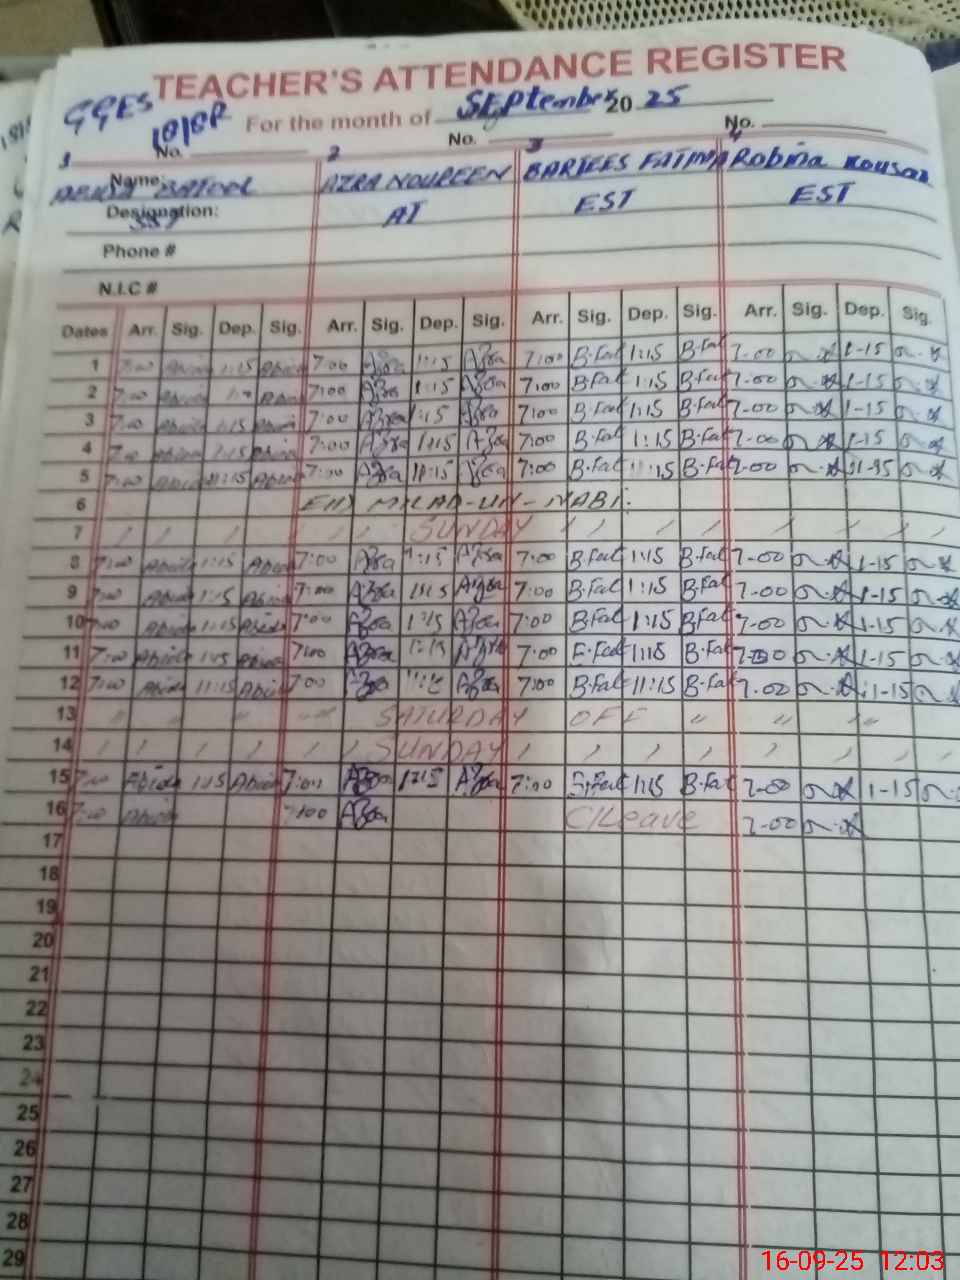 TEACHER'S ATTENDANCE REGISTER
GGES 18/8P For the month of September 20 25
1 No. 2 No. 3 4 No.
Name: BATOOL AZRA NOUREEN BARJEES FATIMA Robina Kousar
Designation: AT EST EST
Phone #
N.I.C #
Dates Arr. Sig. Dep. Sig. Arr. Sig. Dep. Sig. Arr. Sig. Dep. Sig. Arr. Sig. Dep. Sig.
1 7:00 Abida 1:15 Abida 7:00 Azra 1:15 Azra 7:00 B.Fat 1:15 B.Fat 7-00 1-15
2 7:00 Abida Abida 7:00 Azra 1:15 Azra 7:00 B.Fat 1:15 B.Fat 7-00 1-15
3 7:00 Abida 1:15 Abida 7:00 Azra 1:15 Azra 7:00 B.Fat 1:15 B.Fat 7-00 1-15
4 7:00 Abida 1:15 Abida 7:00 Azra 1:15 Azra 7:00 B.Fat 1:15 B.Fat 7-00 1-15
5 7:00 Abida 1:15 Abida 7:00 Azra 1:15 Azra 7:00 B.Fat 1:15 B.Fat 7-00
6 EID MILAD-UN-NABI
7 SUNDAY
8 7:00 Abida 1:15 Abida 7:00 Azra 1:15 Azra 7:00 B.Fat 1:15 B.Fat 7-00 1-15
9 7:00 Abida 1:15 Abida 7:00 Azra 1:15 Azra 7:00 B.Fat 1:15 B.Fat 7-00 1-15
10 7:00 Abida 1:15 Abida 7:00 Azra 1:15 Azra 7:00 B.Fat 1:15 B.Fat 7-00 1-15
11 7:00 Abida 1:15 Abida 7:00 Azra Azra 7:00 B.Fat 1:15 B.Fat 1-15
12 7:00 Abida 1:15 Abida 7:00 Azra Azra 7:00 B.Fat 1:15 B.Fat 7-00 1-15
13 SATURDAY OFF
14 SUNDAY
15 7:00 Abida 1:15 Abida 7:00 Azra 1:15 Azra 7:00 B.Fat 1:15 B.Fat 7-00 1-15
16 7:00 Abida 7:00 Azra C/Leave 7-00
17
18
19
20
21
22
23
24
25
26
27
28
29
16-09-25 12:03